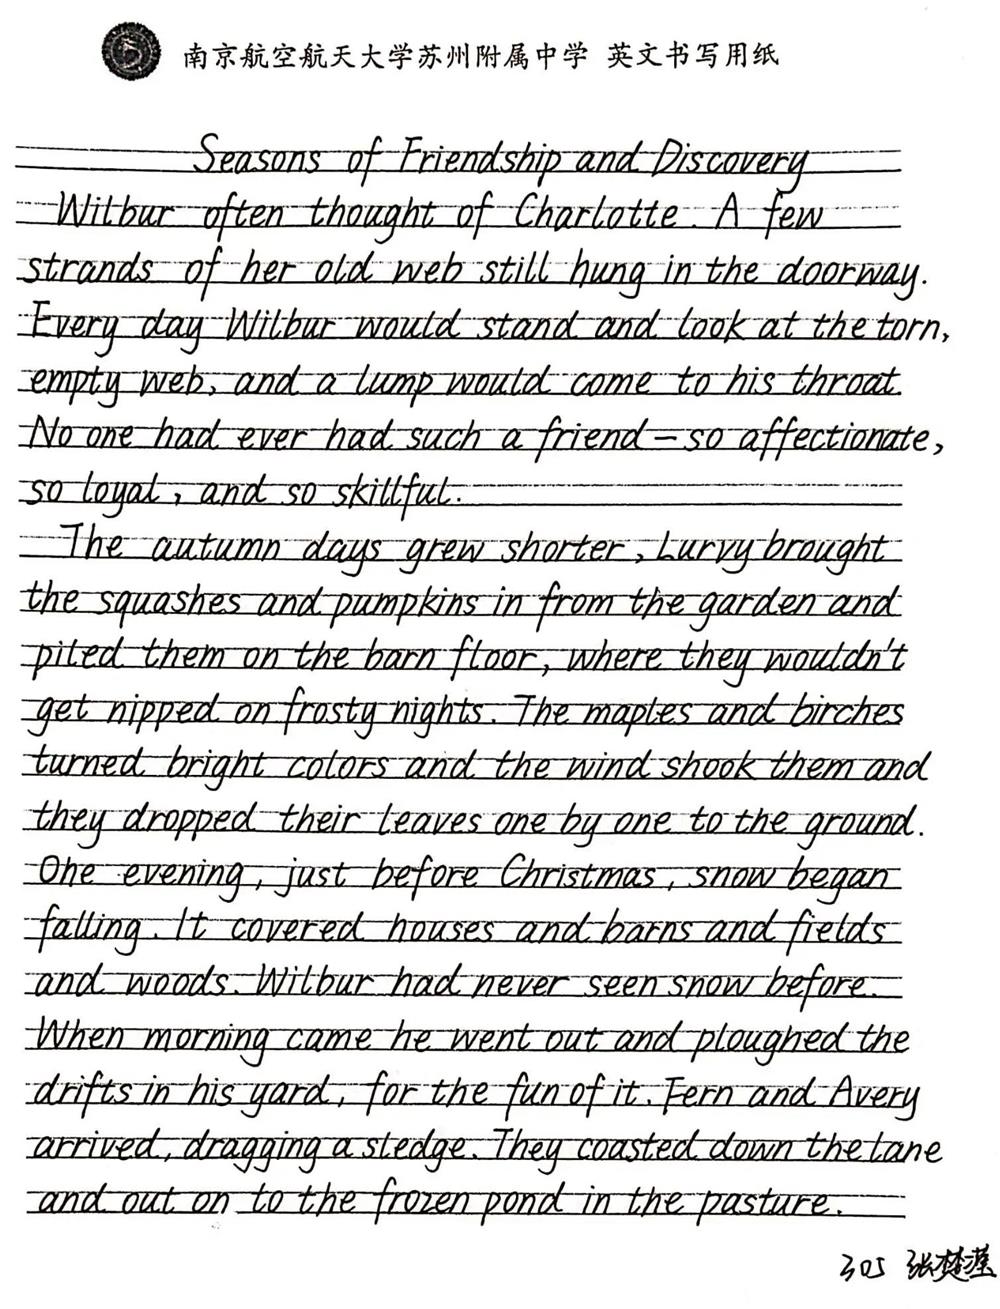 南京航空航天大学苏州附属中学 英文书写用纸
Seasons of Friendship and Discovery
Wilbur often thought of Charlotte. A few
strands of her old web still hung in the doorway.
Every day Wilbur would stand and look at the torn,
empty web, and a lump would come to his throat.
No one had ever had such a friend — so affectionate,
so loyal, and so skillful.
The autumn days grew shorter, Lurvy brought
the squashes and pumpkins in from the garden and
piled them on the barn floor, where they wouldn't
get nipped on frosty nights. The maples and birches
turned bright colors and the wind shook them and
they dropped their leaves one by one to the ground.
One evening, just before Christmas, snow began
falling. It covered houses and barns and fields
and woods. Wilbur had never seen snow before.
When morning came he went out and ploughed the
drifts in his yard, for the fun of it. Fern and Avery
arrived, dragging a sledge. They coasted down the lane
and out on to the frozen pond in the pasture.
305 张楚滢